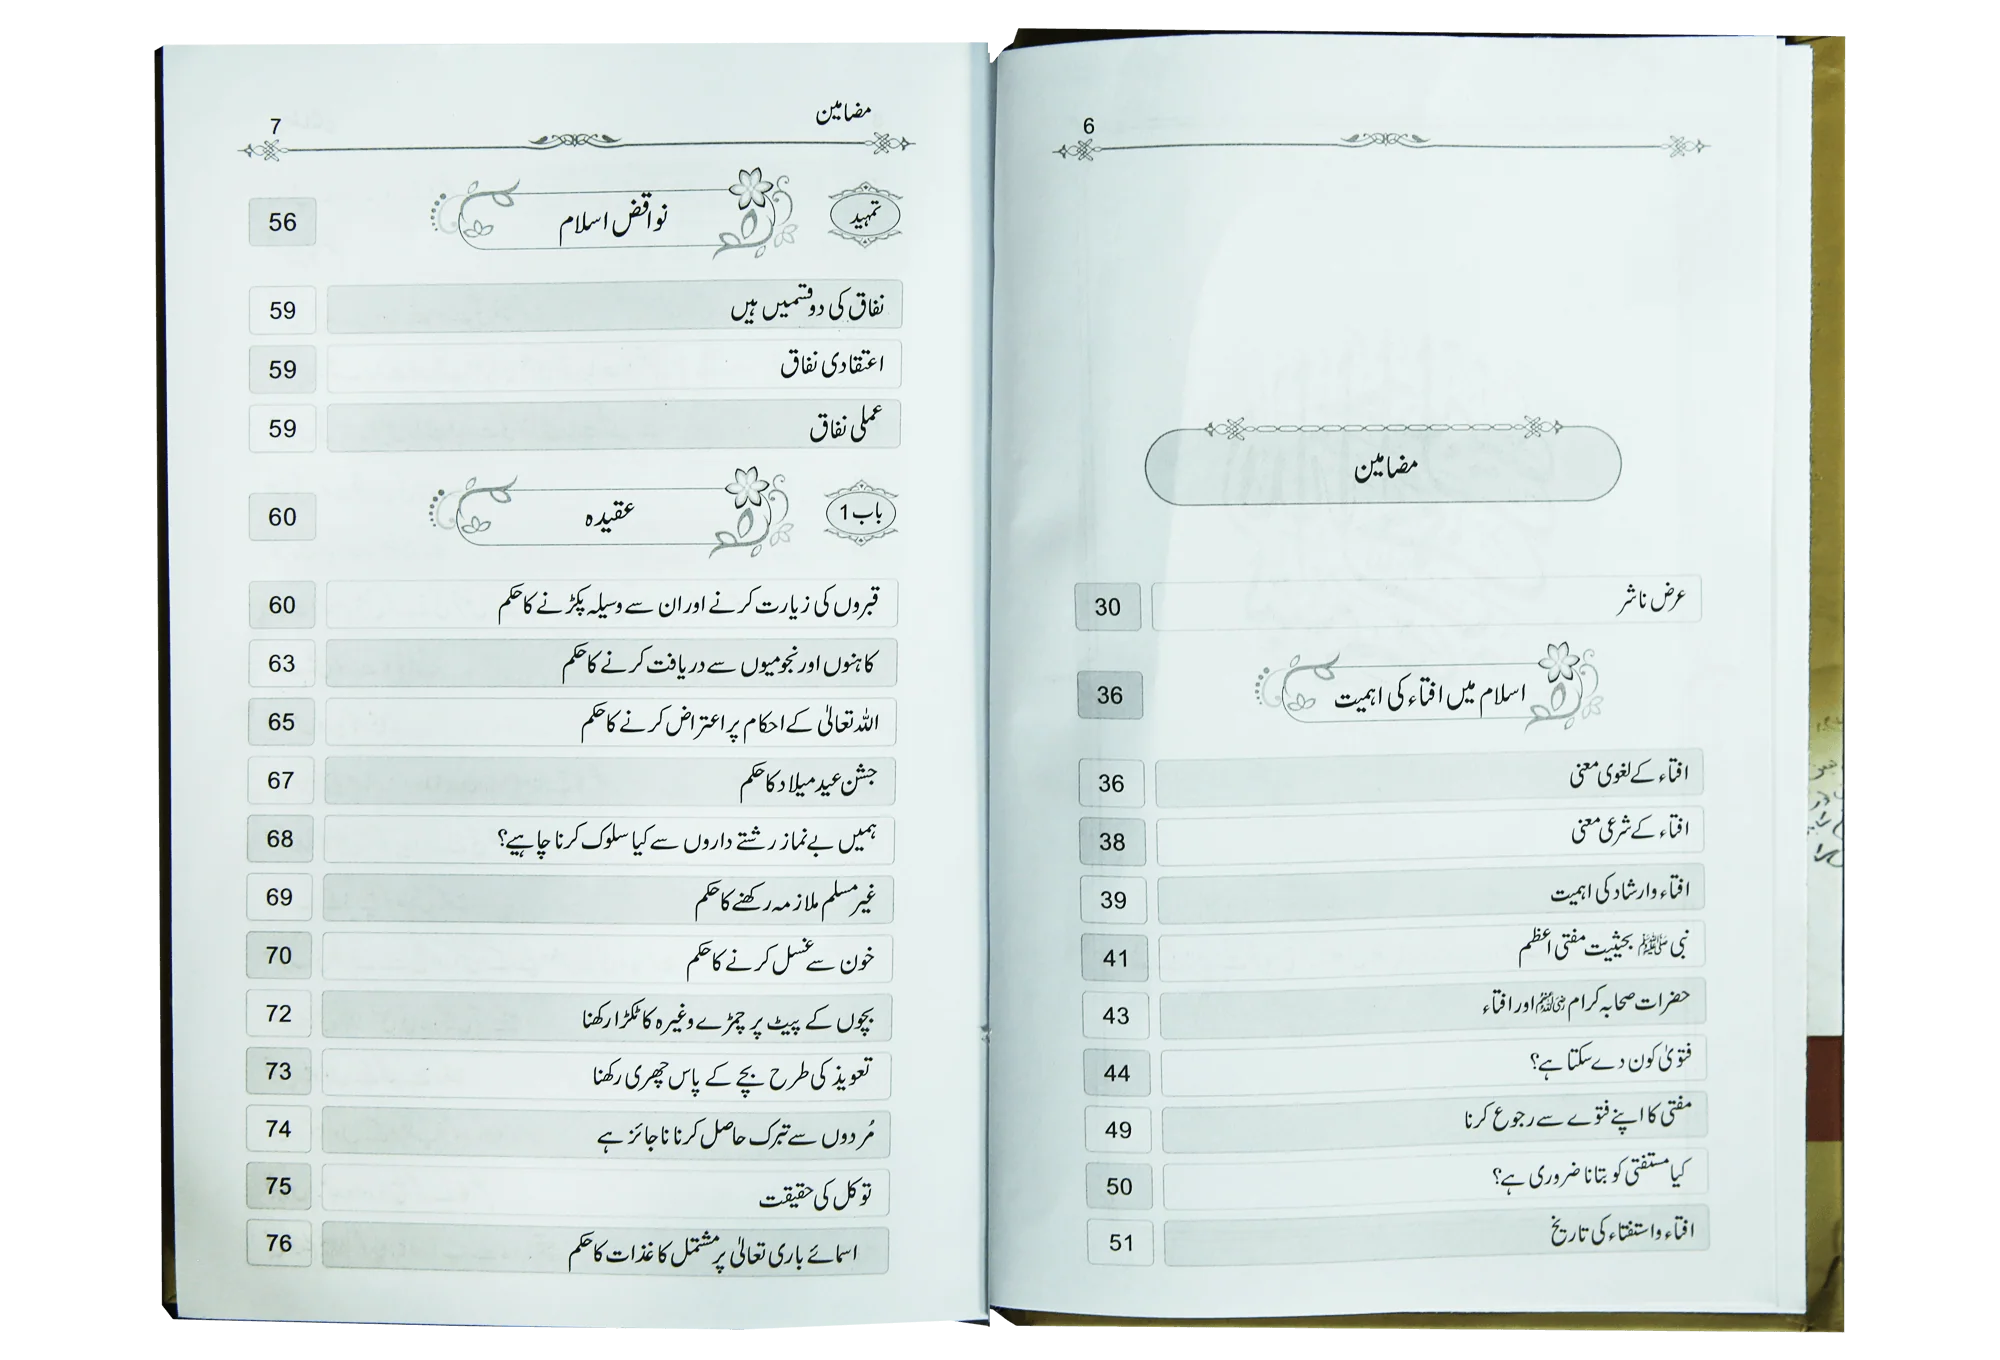 6
مضامین
عرض ناشر 30
اسلام میں افتاء کی اہمیت 36
افتاء کے لغوی معنی 36
افتاء کے شرعی معنی 38
افتاء وارشاد کی اہمیت 39
نبی ﷺ بحیثیت مفتی اعظم 41
حضرات صحابہ کرام رضی اللہ عنہم اور افتاء 43
فتویٰ کون دے سکتا ہے؟ 44
مفتی کا اپنے فتوے سے رجوع کرنا 49
کیا مستفتی کو بتانا ضروری ہے؟ 50
افتاء و استفتاء کی تاریخ 51
مضامین 7
تمہید نواقض اسلام 56
نفاق کی دو قسمیں ہیں 59
اعتقادی نفاق 59
عملی نفاق 59
باب 1 عقیدہ 60
قبروں کی زیارت کرنے اور ان سے وسیلہ پکڑنے کا حکم 60
کاہنوں اور نجومیوں سے دریافت کرنے کا حکم 63
اللہ تعالیٰ کے احکام پر اعتراض کرنے کا حکم 65
جشن عید میلاد کا حکم 67
ہمیں بے نماز رشتے داروں سے کیا سلوک کرنا چاہیے؟ 68
غیر مسلم ملازمہ رکھنے کا حکم 69
خون سے غسل کرنے کا حکم 70
بچوں کے پیٹ پر چمڑے وغیرہ کا ٹکڑا رکھنا 72
تعویذ کی طرح بچے کے پاس چھری رکھنا 73
مُردوں سے تبرک حاصل کرنا ناجائز ہے 74
توکل کی حقیقت 75
اسمائے باری تعالیٰ پر مشتمل کاغذات کا حکم 76